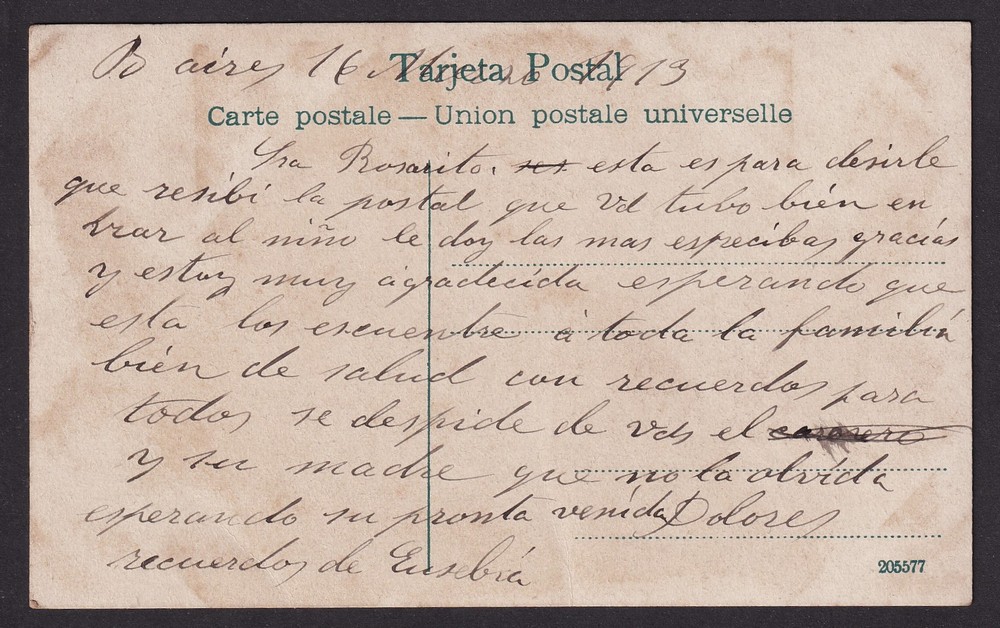 Bs aires 16 Marzo 1913
Tarjeta Postal
Carte postale — Union postale universelle
Sra Rosarito. ses esta es para desirle
que resibi la postal que Vd tubo bién en
brar al niño le doy las mas especibas gracias
y estoy muy ágradecida esperando que
esta los escuentre á toda la familia
bién de salud con recuerdos para
todos se despide de Vds el
y su madre que no la olvida
esperando su pronta venida Dolores
recuerdos de Eusebia
205577